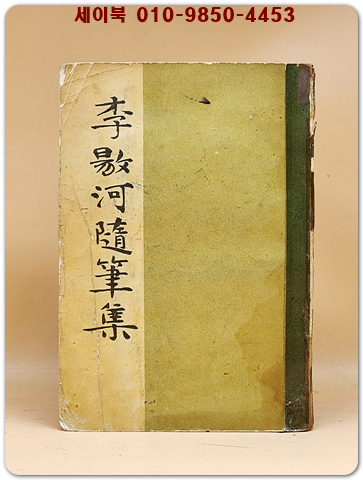 세이북 010-9850-4453
李敭河隨筆集